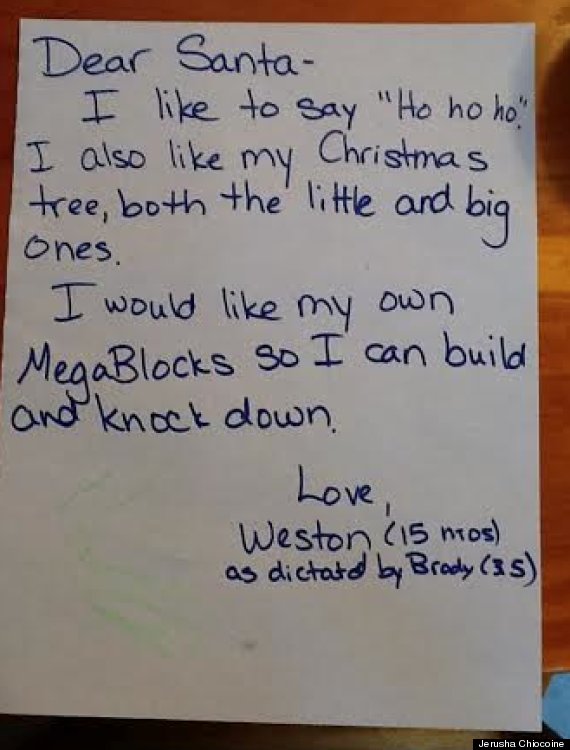 Dear Santa-
I like to say "Ho ho ho."
I also like my Christmas
tree, both the little and big
ones.
I would like my own
MegaBlocks so I can build
and knock down.
Love,
Weston (15 mos)
as dictated by Brady
Jerusha Chiocoine